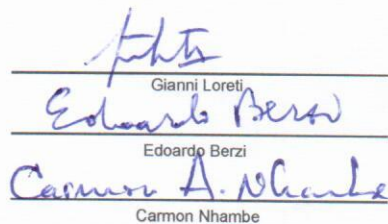 Gianni Loreti
Edoardo Berzi
Edoardo Berzi
Carmon A. Nhambe
Carmon Nhambe